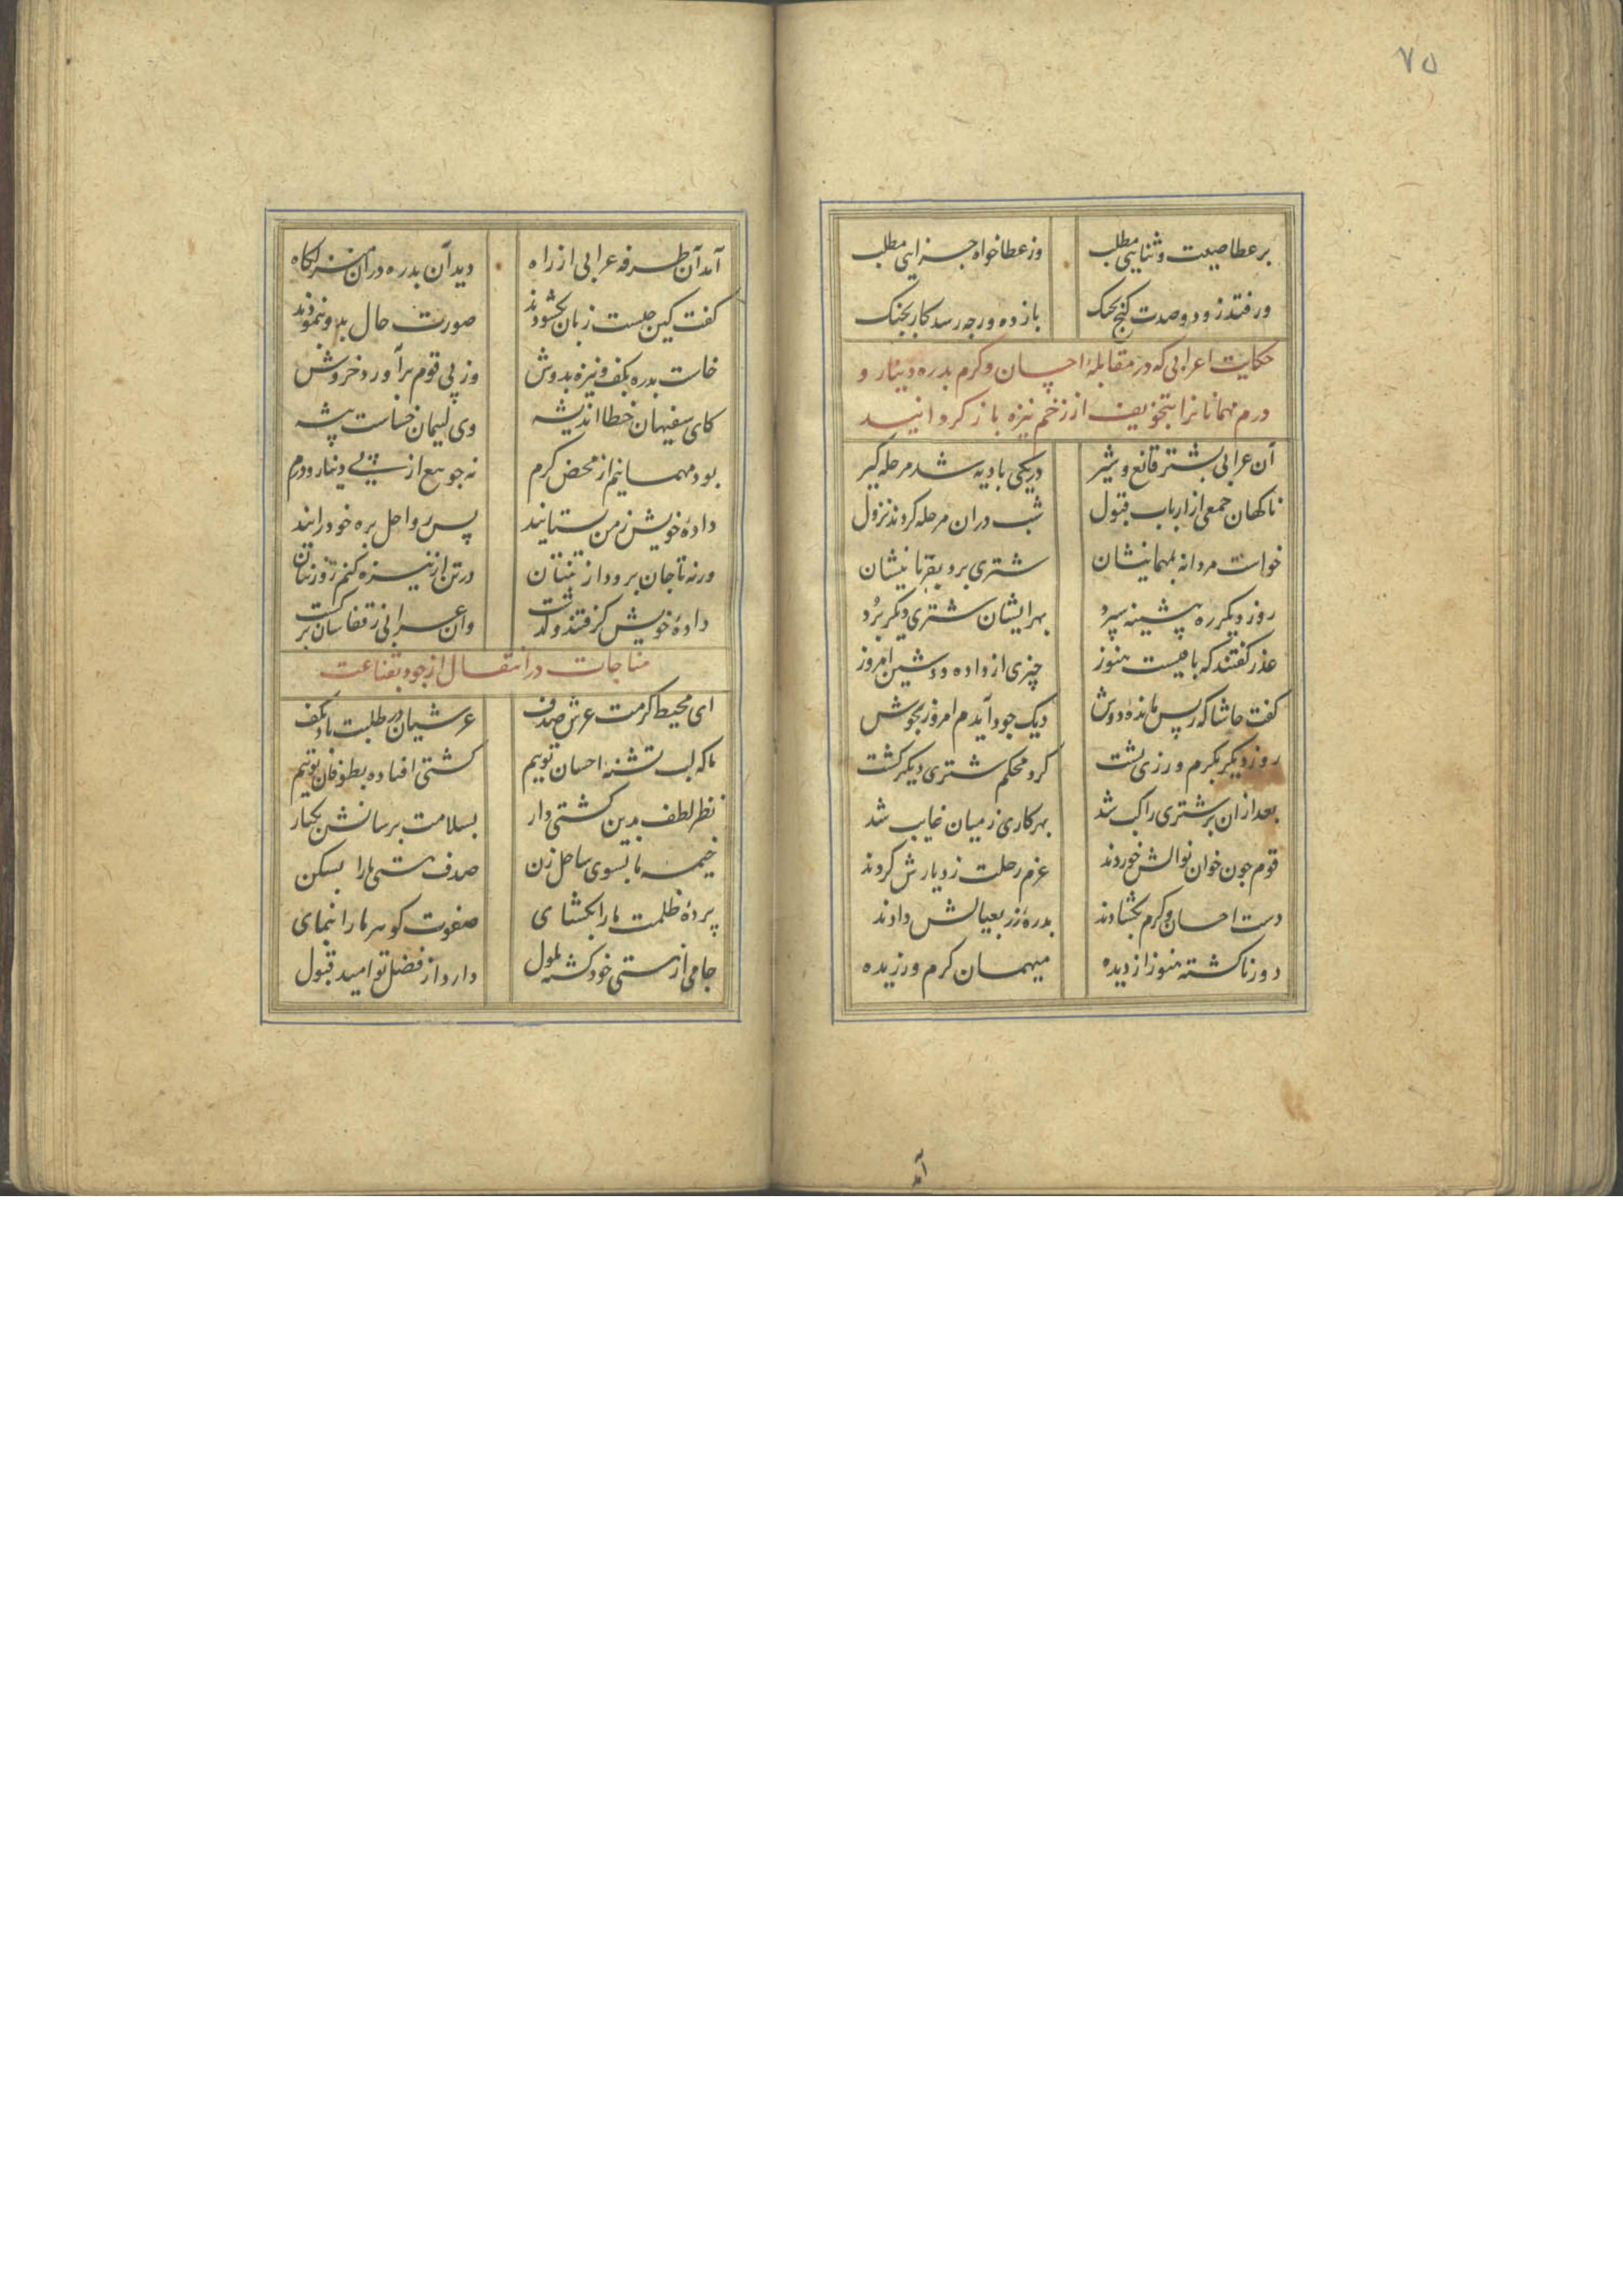 ۷۵
بر عطا صیت و ثنایی مطلب وز عطا خواه جزایی مطلب
ور فتد زود و صدت کنج بچنک باز ده ورچه رسد کار بجنک
حکایت اعرابی که در مقابلهٔ احسان و کرم بدره دینار و
درم مهمانانرا بتخویف از زخم نیزه باز کردانید
آن عرابی بشتر قانع و شیر در یکی بادیه شد مرحله کیر
ناکهان جمعی از ارباب قبول شب در ان مرحله کردند نزول
خواست مردانه بمهمانیشان شتری برد بقربانیشان
روز دیکر ره پیشینه سپرد بهر ایشان شتری دیکر برد
عذر کفتند که باقیست هنوز چیزی از داده دوشین امروز
کفت حاشا که ز پس مانده دوش دیک جود آیدم امروز بجوش
روز دیکر بکرم ورزی پشت کرد محکم شتری دیکر کشت
بعد از ان بر شتری راکب شد بهر کاری ز میان غایب شد
قوم چون خوان نوالش خوردند عزم رحلت ز دیارش کردند
دست احسان و کرم بکشادند بدرهٔ زر بعیالش دادند
دور ناکشته هنوز از دیده میهمان کرم ورزیده
آمد
آمد آن طرفه عرابی از راه دید آن بدره در آن منزلکاه
کفت کین چیست زبان بکشودند صورت حال بدو بنمودند
خاست بدره بکف و نیزه بدوش وز پی قوم برآورد خروش
کای سفیهان خطا اندیشه وی لئیمان خساست پیشه
بود مهمانیم از محض کرم نه چو بیع از پی دینار و درم
دادهٔ خویش ز من بستانید پس رواحل بره خود رانید
ورنه تا جان برود از تنتان در تن از نیزه کنم روزنتان
دادهٔ خویش کرفتند و کذشت وان عرابی ز قفاشان برکشت
مناجات در انتقال از جود بقناعت
ای محیط کرمت عرش صدف عرشیان در طلبت باد بکف
ما که لب تشنه احسان توییم کشتی افتاده بطوفان توییم
نظر لطف بدین کشتی دار بسلامت برسانش بکنار
خیمه ما بسوی ساحل زن صدف هستی ما را بشکن
پردهٔ ظلمت ما را بکشای صفوت کوهر ما را بنمای
جامی از هستی خود کشته ملول دارد از فضل تو امید قبول